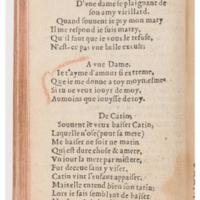 D'vne dame se plaignant de
son amy vieillard.
Quand souuent ie pry mon mary
Il me respond ie suis marry,
Qu'il faut que ie vous le refuse,
N'est-ce pas vne belle excuse?
A vne Dame.
Ie t'ayme d'amour si extreme,
Que ie me donne a toy moymesme
Si tu ne veux iouyr de moy,
Aumoins que iouysse de toy.
De Catin.
Souuent ie veux baiser Catin,
Laquelle n'ose (pour sa mere)
Me baiser ne soir ne matin
Qui est dure chose & amere,
Vn iour la mere par
Fut deceue sans y viser.
Catin vint l'enfant appaiser,
Mais elle entend bien son latin;
Lors ie fais semblant de baiser